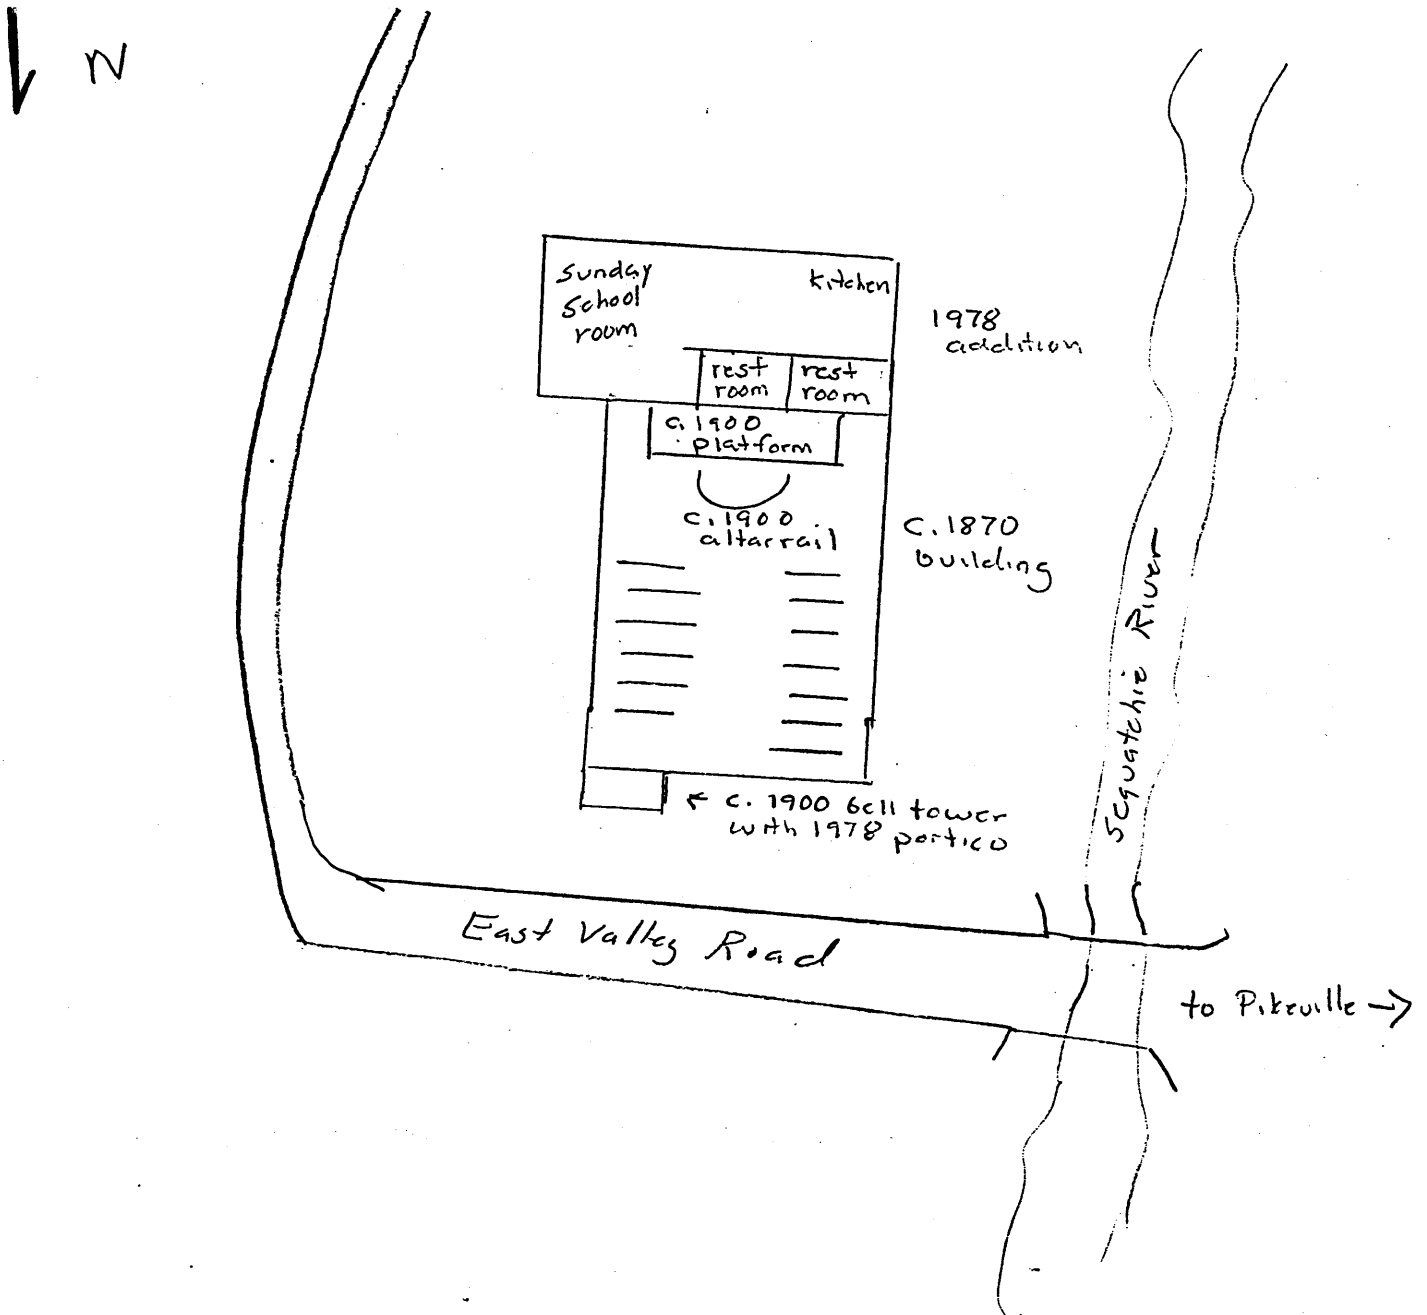 N
Sunday
School
room
kitchen
1978
addition
rest
room
rest
room
c. 1900
platform
c. 1900
altar rail
c. 1870
building
Sequatchie River
← c. 1900 bell tower
with 1978 portico
East Valley Road
to Pikeville →